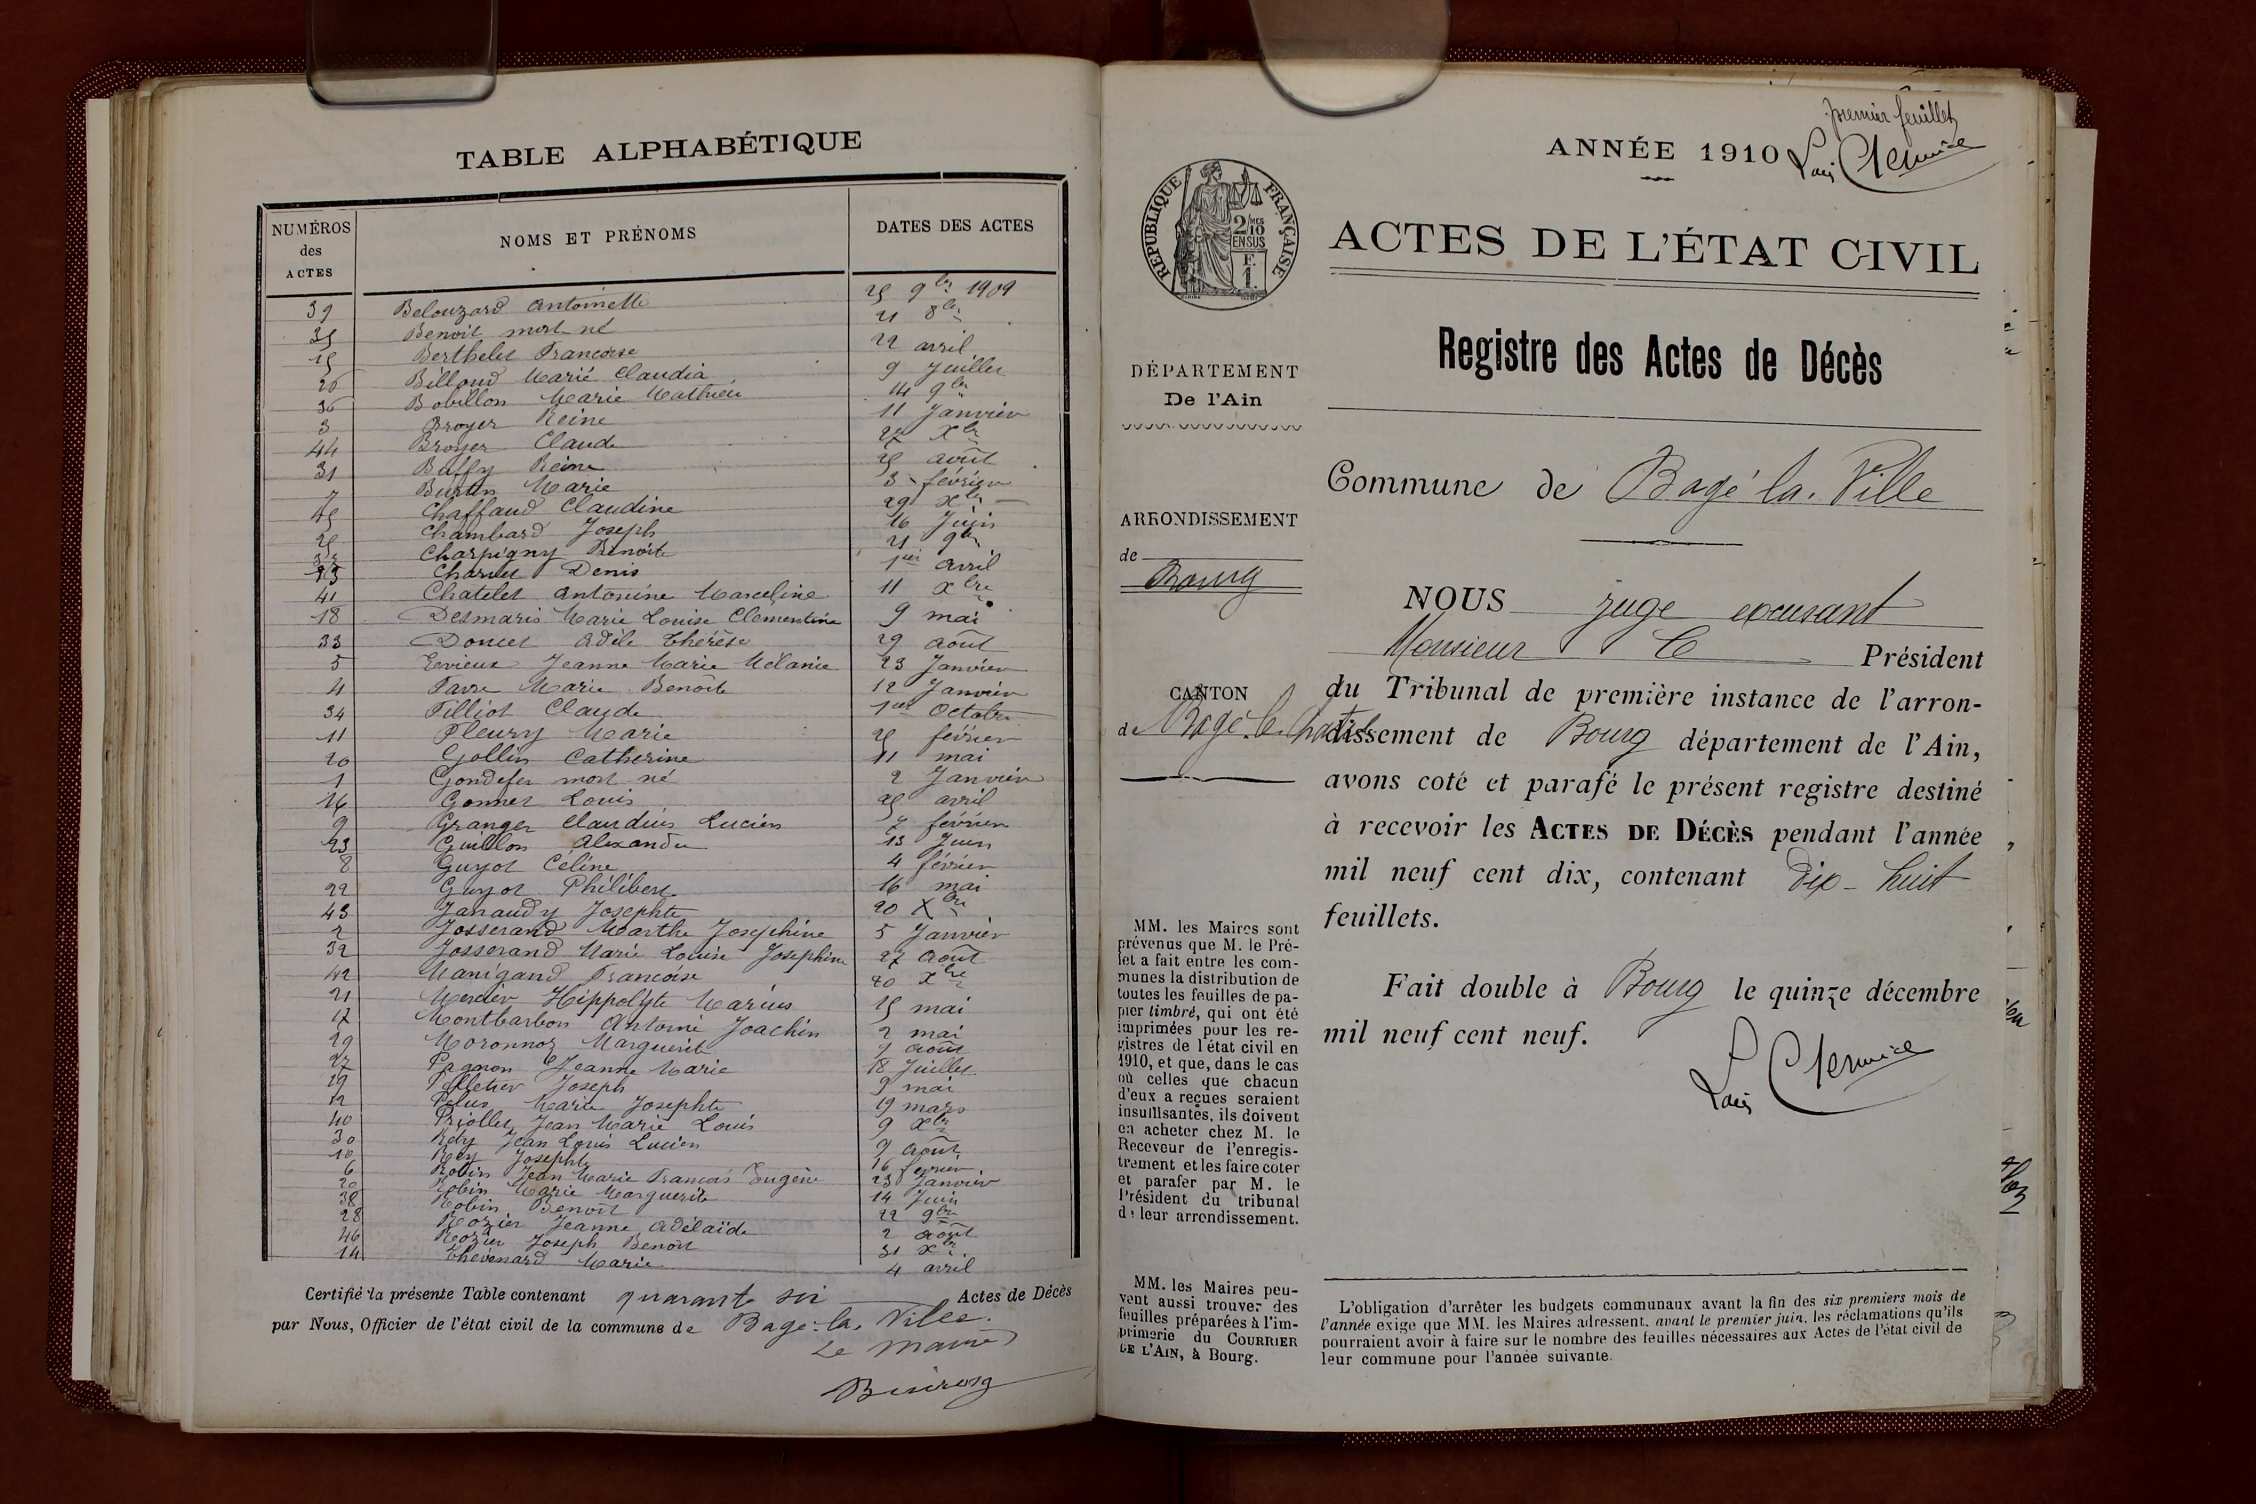 TABLE ALPHABÉTIQUE
NUMÉROS des ACTES
NOMS ET PRÉNOMS
DATES DES ACTES
39 Belouzard Antoinette 25 9bre 1909
35 Benoit mort né 21 8bre
15 Berthelet Francoise 22 avril
26 Billoud Marie Claudia 9 Juillet
36 Bobillon Marie Mathieu 14 9bre
3 Broyer Reine 11 Janvier
44 Broyer Claude 27 Xbre
31 Buffy Reine 25 août
7 Burtin Marie 3 février
45 Chaffaud Claudine 29 Xbre
25 Chambard Joseph 16 Juin
37 Charpigny Benoite 21 9bre
13 Charvet Denis 1er avril
41 Chatelet Antonine Marceline 11 Xbre
18 Desmaris Marie Louise Clementine 9 mai
33 Doucet Adèle Thérèse 29 août
5 Evieux Jeanne Marie Mélanie 23 Janvier
4 Favre Marie Benoite 12 Janvier
34 Filliot Claude 1er Octobre
11 Fleury Marie 25 février
20 Gollin Catherine 11 mai
1 Gondefer mort né 2 Janvier
16 Gonnet Louis 25 avril
9 Granger Claudius Lucien 7 février
23 Guillon Alexandre 13 Juin
8 Guyot Céline 4 février
22 Guyot Philibert 16 mai
43 Janaudy Josephte 20 Xbre
2 Josserand Marthe Josephine 5 Janvier
32 Josserand Marie Louise Josephine 27 août
42 Manigand Francoise 20 Xbre
21 Mercier Hippolyte Marius 15 mai
17 Montbarbon Antoine Joachin 2 mai
29 Moronnoz Marguerite 7 août
27 Pagnon Jeanne Marie 18 Juillet
19 Pelletier Joseph 9 mai
12 Pelus Marie Josephte 19 mars
40 Priollet Jean Marie Louis 9 Xbre
30 Rety Jean Louis Lucien 9 août
10 Rey Josephte 16 fevrier
6 Robin Jean Marie Francois Eugène 23 Janvier
Robin Marie Marguerite 14 Juin
38 Robin Benoit 22 9bre
28 Rozier Jeanne Adélaïde 2 août
46 Rozier Joseph Benoit 31 Xbre
14 Thévenard Marie 4 avril
Certifié la présente Table contenant quarante six Actes de Décès
par Nous, Officier de l'état civil de la commune de Bagé-la-Ville.
Le Maire
premier feuillet
ANNÉE 1910
RÉPUBLIQUE FRANÇAISE
2/10MES EN SUS
F. 1.
ACTES DE L'ÉTAT CIVIL
Registre des Actes de Décès
DÉPARTEMENT
De l'Ain
Commune de Bagé la Ville
ARRONDISSEMENT
de
Bourg
CANTON
de Bagé-le-Chatel
NOUS juge excusant
Monsieur le Président
du Tribunal de première instance de l'arron-
dissement de Bourg département de l'Ain,
avons coté et parafé le présent registre destiné
à recevoir les ACTES DE DÉCÈS pendant l'année
mil neuf cent dix, contenant Dix-huit
feuillets.
Fait double à Bourg le quinze décembre
mil neuf cent neuf.
MM. les Maires sont
prévenus que M. le Pré-
fet a fait entre les com-
munes la distribution de
toutes les feuilles de pa-
pier timbré, qui ont été
imprimées pour les re-
gistres de l'état civil en
1910, et que, dans le cas
où celles que chacun
d'eux a reçues seraient
insuffisantes, ils doivent
en acheter chez M. le
Receveur de l'enregis-
trement et les faire coter
et parafer par M. le
Président du tribunal
de leur arrondissement.
MM. les Maires peu-
vent aussi trouver des
feuilles préparées à l'im-
primerie du COURRIER
DE L'AIN, à Bourg.
L'obligation d'arrêter les budgets communaux avant la fin des six premiers mois de
l'année exige que MM. les Maires adressent, avant le premier juin, les réclamations qu'ils
pourraient avoir à faire sur le nombre des feuilles nécessaires aux Actes de l'état civil de
leur commune pour l'année suivante.